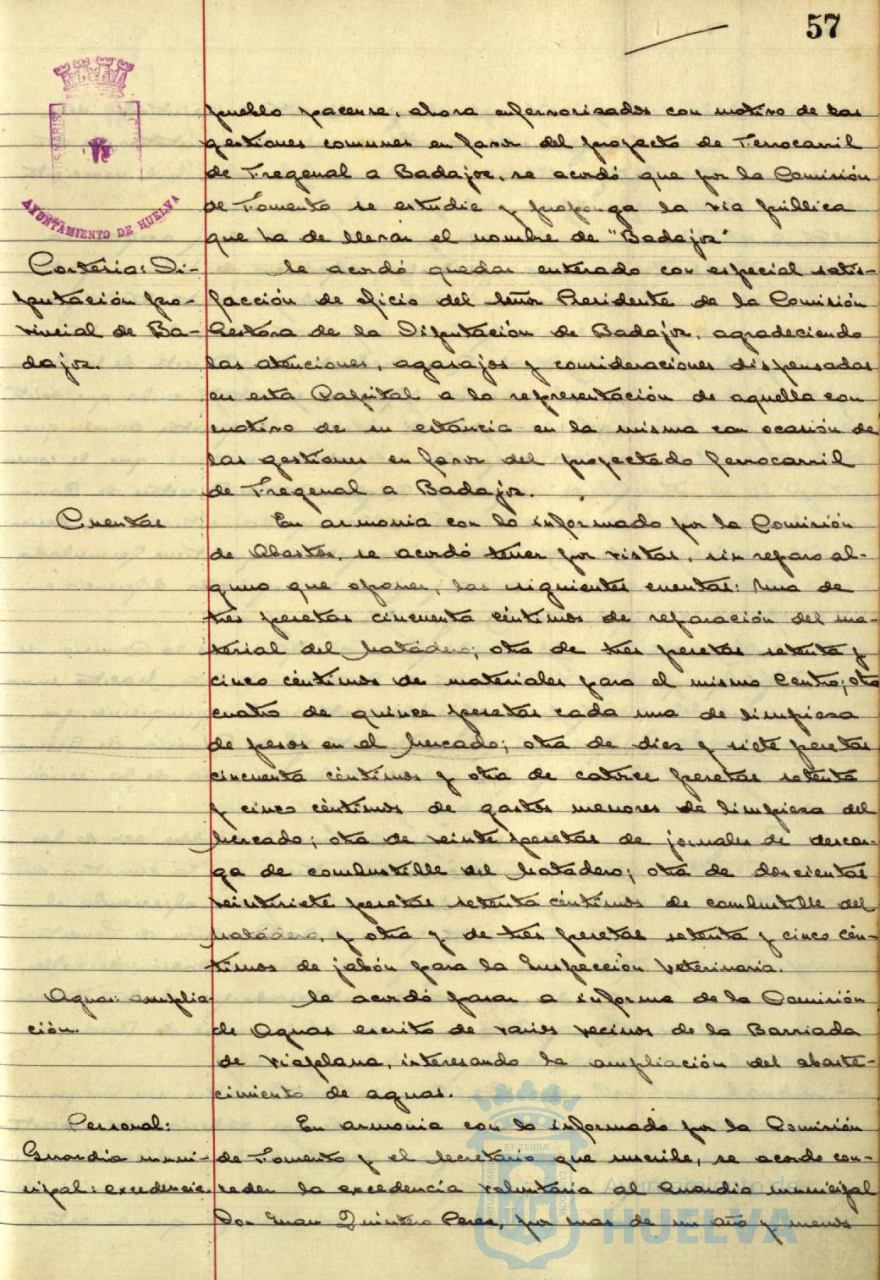 57
AYUNTAMIENTO DE HUELVA
pueblo pacense, ahora enfervorizados con motivo de las
gestiones comunes en favor del proyecto de Ferrocarril
de Fregenal a Badajoz, se acordó que por la Comisión
de Fomento se estudie y proponga la vía pública
que ha de llevar el nombre de "Badajoz"
Cortesia: Di-
putación pro-
vincial de Ba-
dajoz.
Se acordó quedar enterado con especial satis-
facción de oficio del Señor Presidente de la Comisión
Gestora de la Diputación de Badajoz, agradeciendo
las atenciones, agasajos y consideraciones dispensadas
en esta Capital a la representación de aquella con
motivo de su estancia en la misma con ocasión de
las gestiones en favor del proyectado ferrocarril
de Fregenal a Badajoz.
Cuentas
En armonia con lo informado por la Comisión
de Abastos, se acordó tener por vistas, sin reparo al-
guno que oponer, las siguientes cuentas: Una de
tres pesetas cincuenta céntimos de reparación del ma-
terial del Matadero; otra de tres pesetas setenta y
cinco céntimos de materiales para el mismo Centro; otra
cuatro de quince pesetas cada una de limpieza
de pesos en el Mercado; otra de diez y siete pesetas
cincuenta céntimos y otra de catorce pesetas setenta
y cinco céntimos de gastos menores de limpieza del
Mercado; otra de veinte pesetas de jornales de descar-
ga de combustible del Matadero; otra de doscientas
veintisiete pesetas setenta céntimos de combustible del
Matadero, y otra y de tres pesetas setenta y cinco cén-
timos de jabón para la Inspección Veterinaria.
Aguas: amplia-
ción.
Se acordó pasar a informe de la Comisión
de Aguas escrito de varios vecinos de la Barriada
de Viaplana, interesando la ampliación del abaste-
cimiento de aguas.
Personal:
Guardia muni-
cipal: excedencia.
En armonia con lo informado por la Comisión
de Fomento y el Secretario que suscribe, se acordo con-
ceder la excedencia voluntaria al Guardia municipal
Don Juan Quintero Perez, por mas de un año y menos
Ayuntamiento de
HUELVA